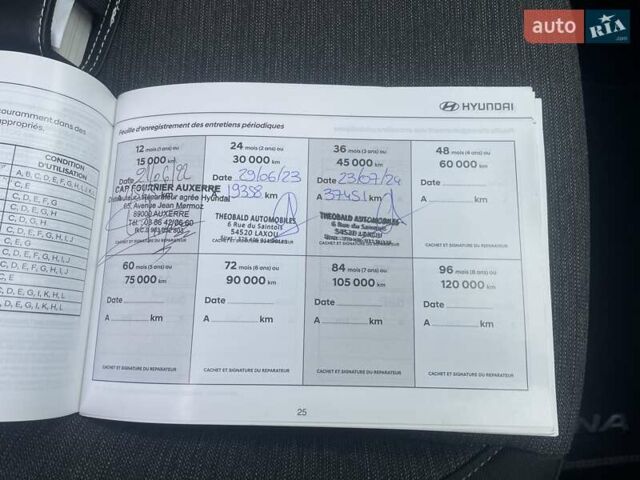 auto RIA .com
HYUNDAI
Feuille d'enregistrement des entretiens périodiques
ouramment dans des
appropriés.
CONDITION
D'UTILISATION
A, B, C, D, E, F, G, H, I, K, L
C, E
C, D, E, F, G
C, D, G, H
C, D, E, F, G
C, D, E, F, G, H, I, J
C, D, E, F, G, H, I, J
C, E, G
C, D, E, F, G, H, I, J
C, E
C, D, E, F, G, H, I, J
, D, E, G, I, K, H, L
, D, E, G, I, K, H, L
12 mois (1 ans) ou
15 000 km
Date 21/06/22
km
CAP FOURNIER AUXERRE
Réparateur agréé Hyundai
65, Avenue Jean Mermoz
89000 AUXERRE
Tél. : 03 86 42 06 60
CACHET ET SIGNATURE DU REPARATEUR
24 mois (2 ans) ou
30 000 km
Date 29/06/23
A 19358 km
THEOBALD AUTOMOBILES
6 Rue du Saintois
54520 LAXOU
CACHET ET SIGNATURE DU REPARATEUR
36 mois (3 ans) ou
45 000 km
Date 23/07/24
A 37451 km
THEOBALD AUTOMOBILES
6 Rue du Saintois
54520 LAXOU
CACHET ET SIGNATURE DU REPARATEUR
48 mois (4 ans) ou
60 000 km
Date
A km
CACHET ET SIGNATURE DU REPARATEUR
60 mois (5 ans) ou
75 000 km
Date
A km
CACHET ET SIGNATURE DU REPARATEUR
72 mois (6 ans) ou
90 000 km
Date
A km
CACHET ET SIGNATURE DU REPARATEUR
84 mois (7 ans) ou
105 000 km
Date
A km
CACHET ET SIGNATURE DU REPARATEUR
96 mois (8 ans) ou
120 000 km
Date
A km
CACHET ET SIGNATURE DU REPARATEUR
25
NA